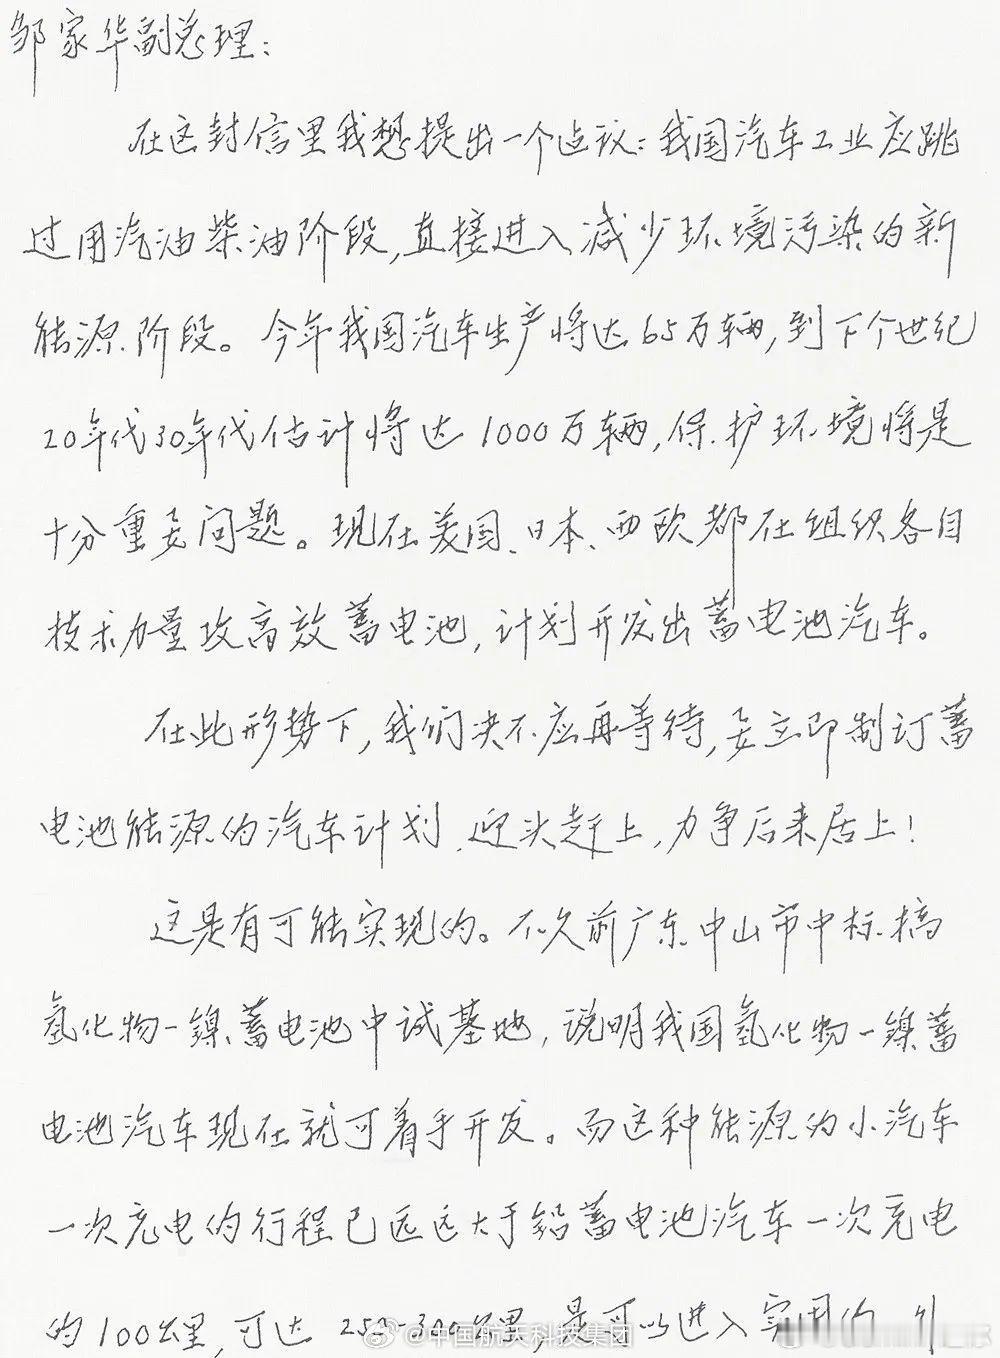 邹家华副总理：
在这封信里我想提出一个建议：我国汽车工业应跳
过用汽油柴油阶段，直接进入减少环境污染的新
能源阶段。今年我国汽车生产将达65万辆，到下个世纪
20年代30年代估计将达1000万辆，保护环境将是
十分重要问题。现在美国、日本、西欧都在组织各自
技术力量攻高效蓄电池，计划开发出蓄电池汽车。
在此形势下，我们决不应再等待，要立即制订蓄
电池能源的汽车计划，迎头赶上，力争后来居上！
这是有可能实现的。不久前广东中山市中标搞
氢化物—镍蓄电池中试基地，说明我国氢化物—镍蓄
电池汽车现在就可着手开发。而这种能源的小汽车
一次充电的行程已远远大于铅蓄电池汽车一次充电
的100公里，可达250-300公里，是可以进入实用的。外
@中国航天科技集团